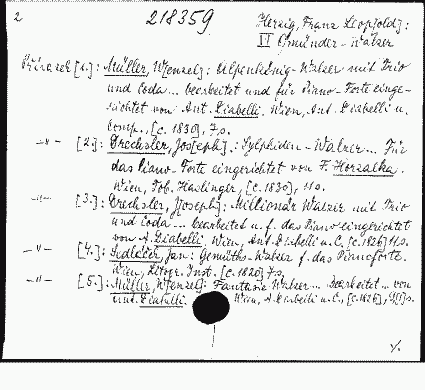 2 218359 Herzig, Franz Leop[old]:
VI Gmünder-Walzer
Přívazek [1.]: Müller, W[enzel]: Alpenkönig-Walzer mit Trio
und Coda... bearbeitet und für Piano-Forte einge-
richtet von Ant. Diabelli. Wien, Ant. Diabelli u.
Comp., [c. 1830], 7 s.
-"- [2.]: Drechsler, Jos[eph].: Sylphiden-Walzer... Für
das Piano-Forte eingerichtet von F. Horzalka.
Wien, Tob. Haslinger, [c. 1830], 11 s.
-"- [3.]: Drechsler, J[oseph]: Millionär Walzer mit Trio
und Coda... bearbeitet u. f. das Piano eingerichtet
von A. Diabelli. Wien, Ant. Diabelli u. C. [c. 1826] 11 s.
-"- [4.]: Sedláček, Jan: Gemüths-Walzer f. das Pianoforte.
Wien, Litogr. Inst. [c. 1820] 7 s.
-"- [5.]: Müller, W[enzel]: Fantasie Walzer... Bearbeitet... von
Ant. Diabelli. Wien, A. Diabelli u. C., [c. 1826],